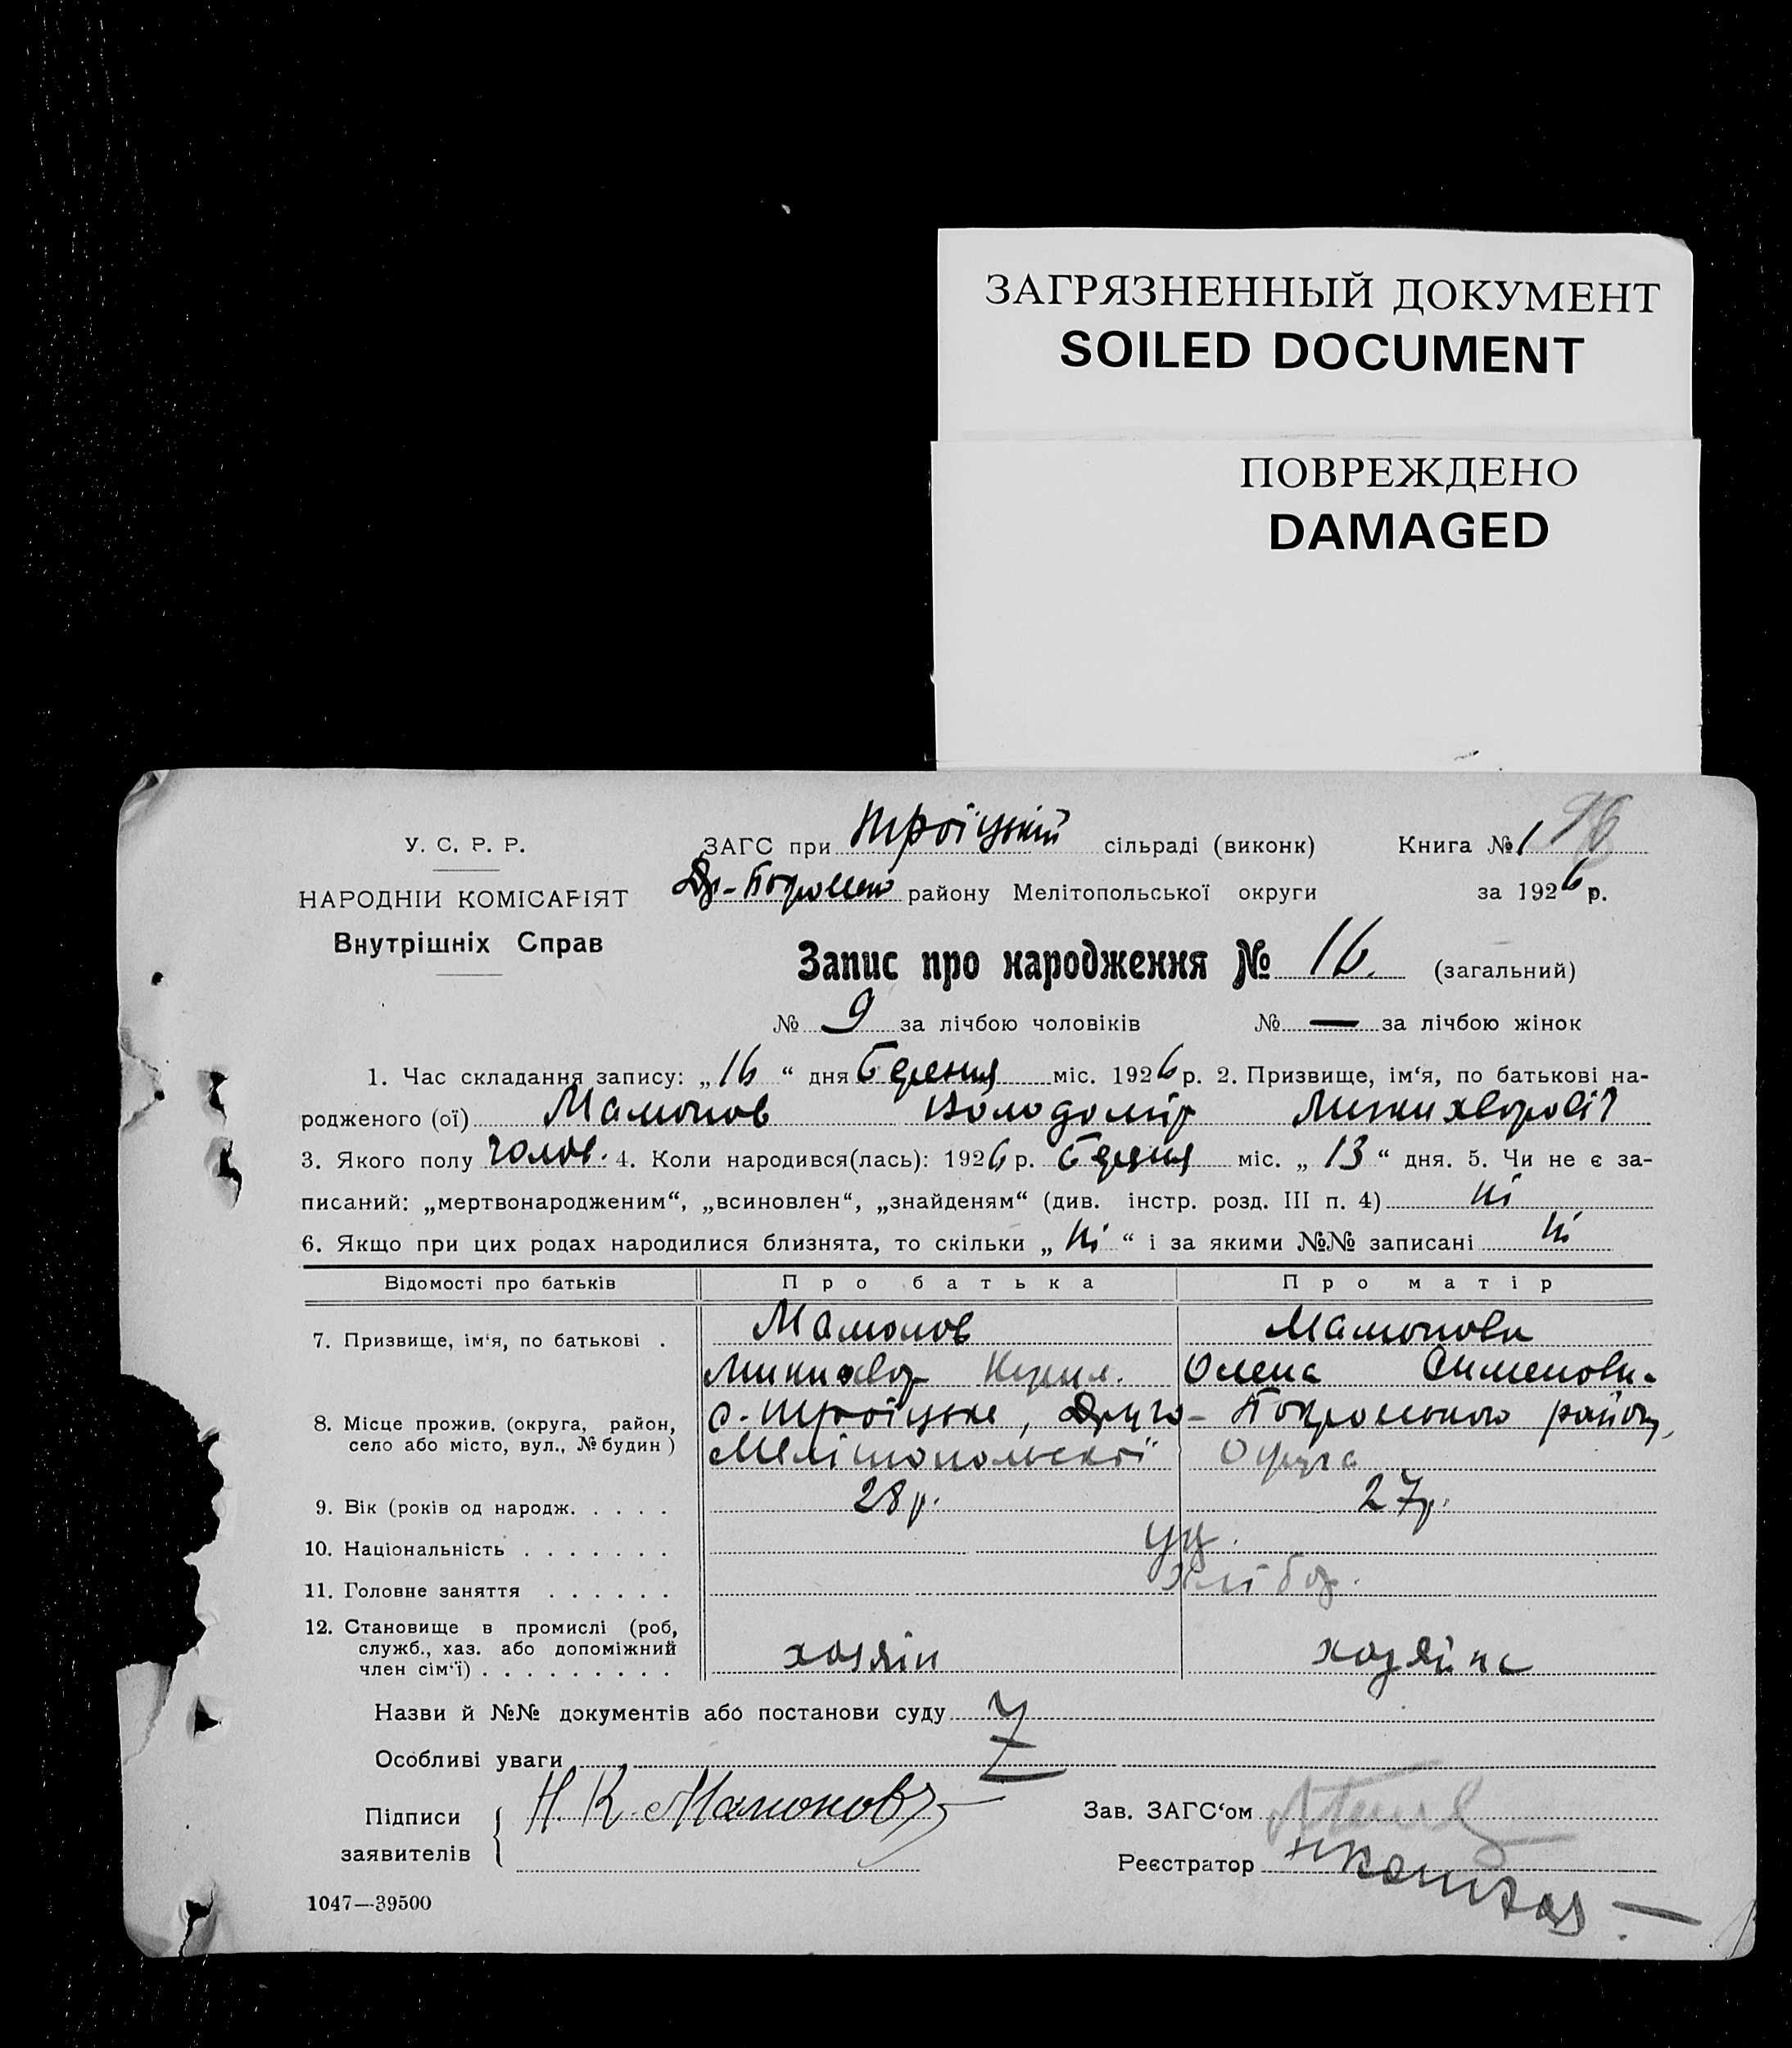 ЗАГРЯЗНЕННЫЙ ДОКУМЕНТ
SOILED DOCUMENT
ПОВРЕЖДЕНО
DAMAGED
У. С. Р. Р.
НАРОДНІЙ КОМІСАРІЯТ
Внутрішніх Справ
ЗАГС при Троїцькій сільраді (виконк) Книга № 1
району Мелітопольської округи за 1926 р.
Запис про народження № 16. (загальний)
№ 9 за лічбою чоловіків № — за лічбою жінок
1. Час складання запису: „16“ дня березня міс. 1926 р. 2. Призвище, ім‘я, по батькові на-
родженого (ої) Мамонов Володомір
3. Якого полу чолов. 4. Коли народився(лась): 1926 р. березня міс. „13“ дня. 5. Чи не є за-
писаний: „мертвонародженим“, „всиновлен“, „знайденям“ (див. інстр. розд. III п. 4) ні
6. Якщо при цих родах народилися близнята, то скільки „ні“ і за якими №№ записані ні
Відомості про батьків Про батька Про матір
7. Призвище, ім‘я, по батькові . Мамонов Мамонова
Олена
8. Місце прожив. (округа, район, с. Троїцьке, Друго-Покровського району,
село або місто, вул., № будин) Мелітопольскої Округа
9. Вік (років од народж. . . . . 28 р. 27 р.
10. Національність . . . . . . .
11. Головне заняття . . . . . . хлібор.
12. Становище в промислі (роб,
служб., хаз. або допоміжний
член сім‘ї) . . . . . . . . . хозяїн хозяйка
Назви й №№ документів або постанови суду
Особливі уваги
Підписи
заявителів Н К. Мамоновъ
Зав. ЗАГС‘ом
Реєстратор
1047—39500